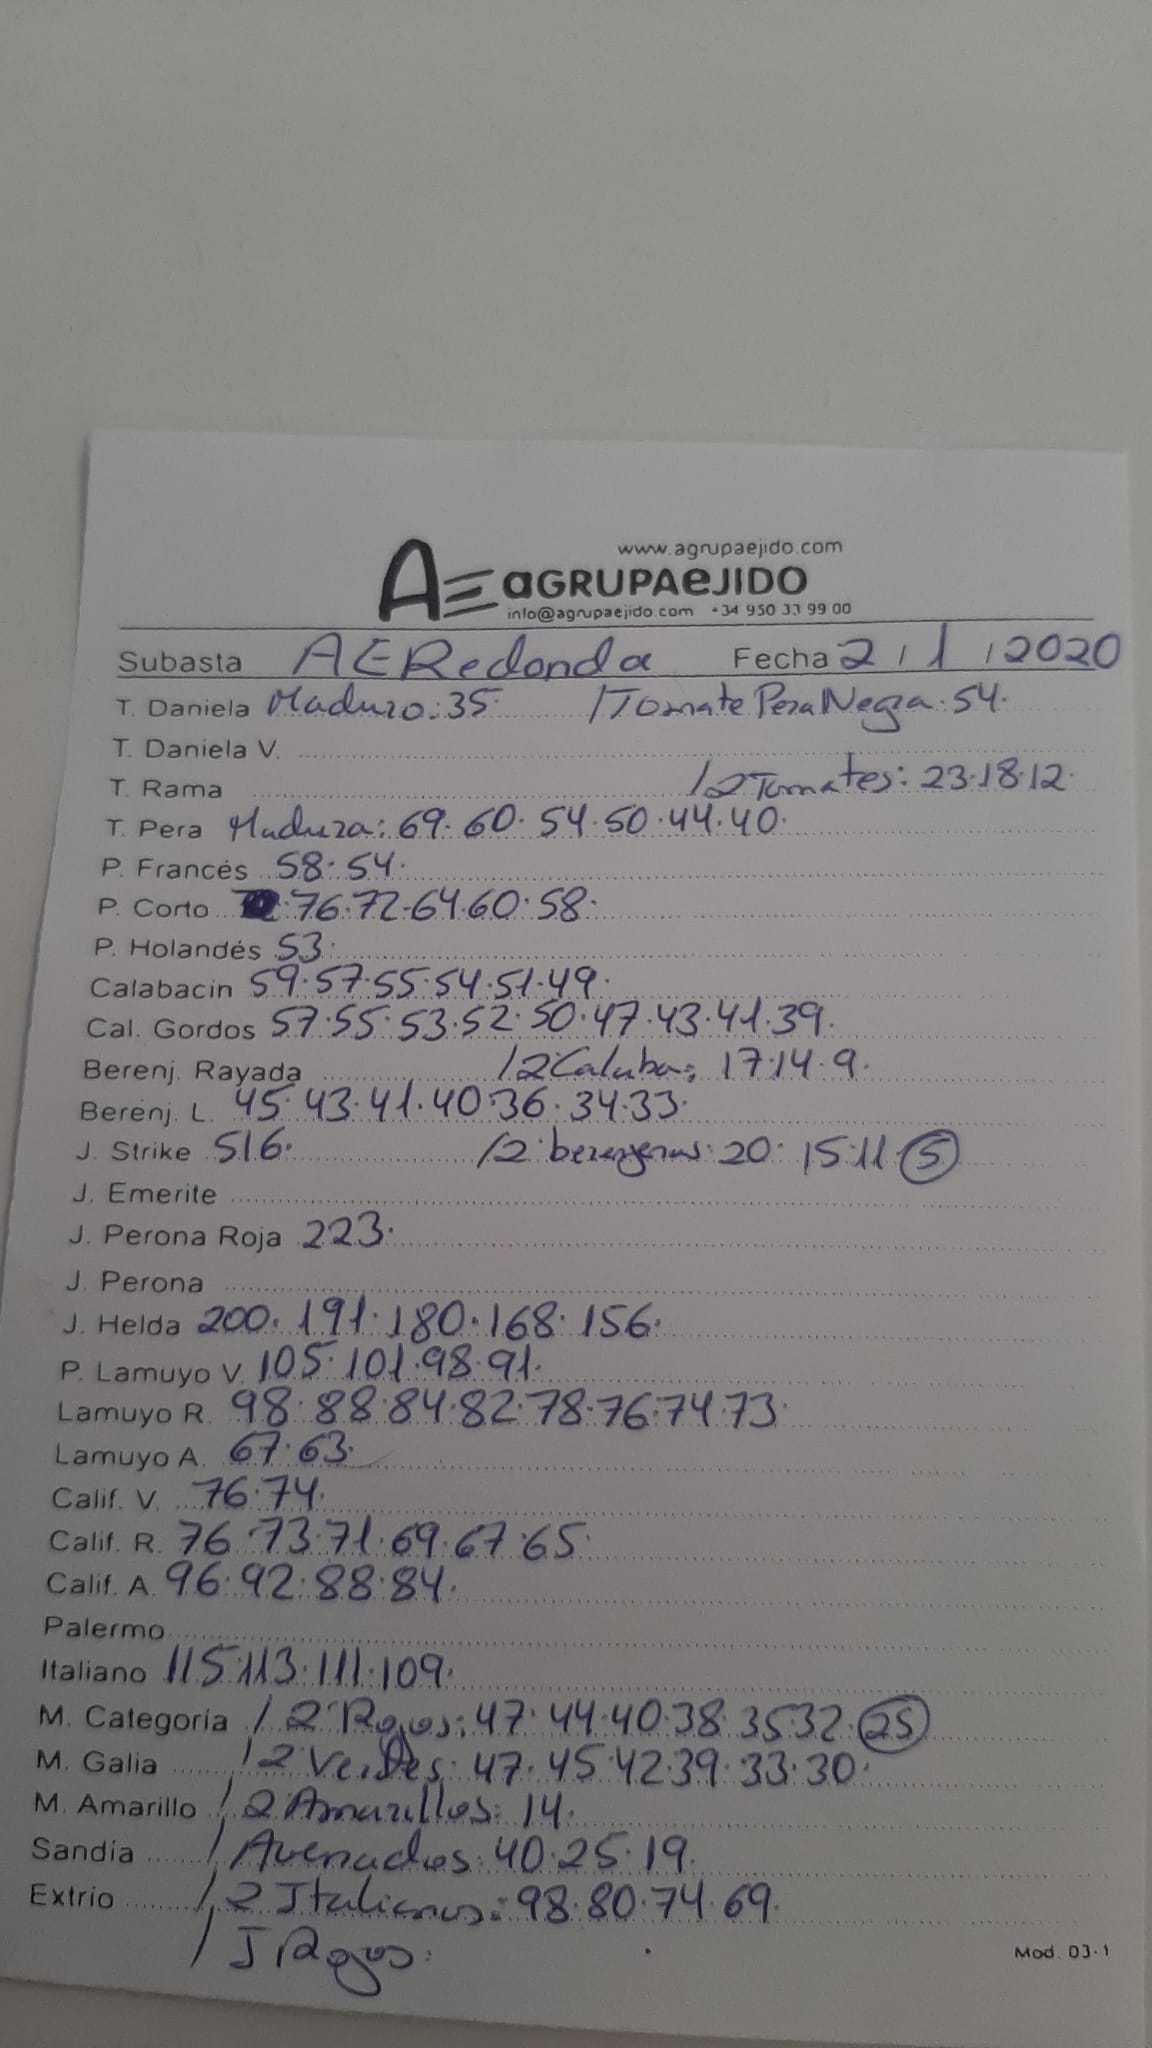 www.agrupaejido.com
AE aGRUPAeJIDO
info@agrupaejido.com +34 950 33 99 00
Subasta AERedonda Fecha 2/1/2020
T. Daniela Maduro: 35. /Tomate Pera Negra: 54.
T. Daniela V.
T. Rama /2 Tomates: 23.18.12.
T. Pera Madura: 69. 60. 54. 50. 44. 40.
P. Francés 58. 54.
P. Corto 76. 72. 64. 60. 58.
P. Holandés 53.
Calabacin 59. 57. 55. 54. 51. 49.
Cal. Gordos 57. 55. 53. 52. 50. 47. 43. 41. 39.
Berenj. Rayada /2 Calaba: 17.14.9.
Berenj. L. 45. 43. 41. 40. 36. 34. 33.
J. Strike 516. /2 berengenas: 20. 15. 11. 5
J. Emerite
J. Perona Roja 223.
J. Perona
J. Helda 200. 191. 180. 168. 156.
P. Lamuyo V. 105. 101. 98. 91.
Lamuyo R. 98. 88. 84. 82. 78. 76. 74. 73.
Lamuyo A. 67. 63.
Calif. V. 76. 74.
Calif. R. 76. 73. 71. 69. 67. 65.
Calif. A. 96. 92. 88. 84.
Palermo
Italiano 115. 113. 111. 109.
M. Categoría /2 Rojos: 47. 44. 40. 38. 35. 32. 25
M. Galia /2 Verdes: 47. 45. 42. 39. 33. 30.
M. Amarillo /2 Amarillos: 14.
Sandía /Asenados: 40. 25. 19.
Extrio /2 Italianos: 98. 80. 74. 69.
/J Rojos:
Mod. 03-1